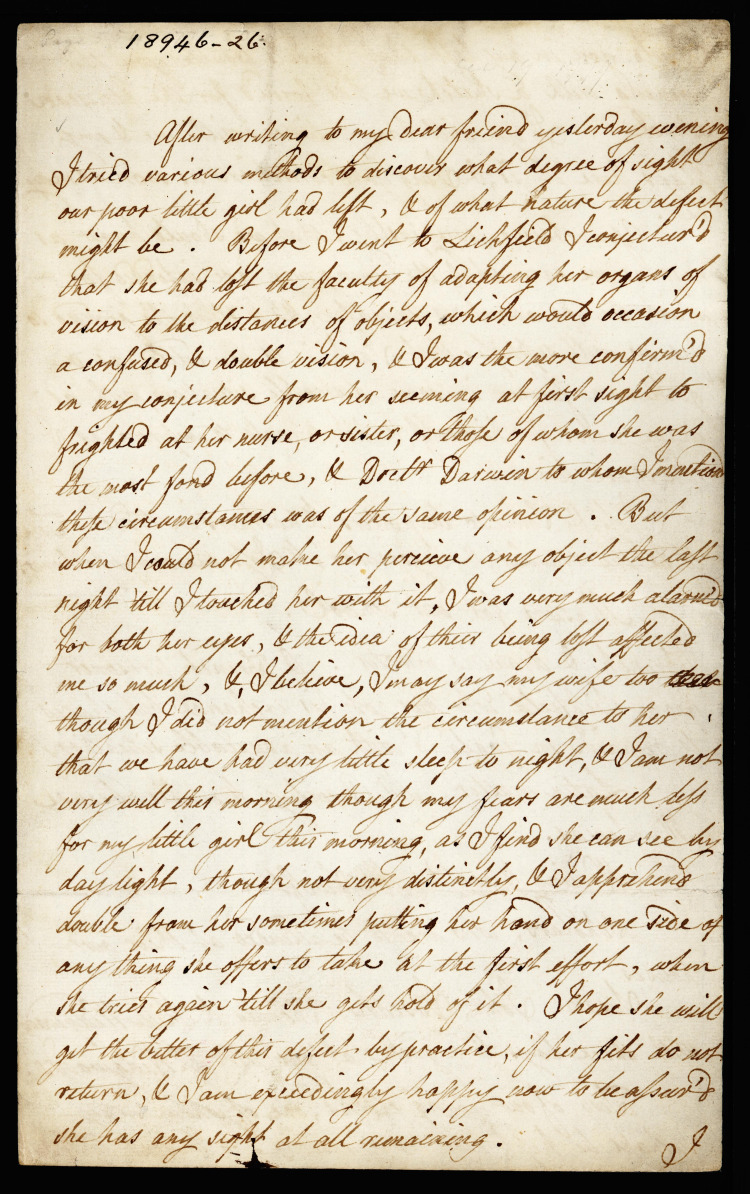 18946-26.
After writing to my dear friend yesterday evening
I tried various methods to discover what degree of sight
our poor little girl had left, & of what nature the defect
might be. Before I went to Lichfield I conjectur'd
that she had lost the faculty of adapting her organs of
vision to the distances of objects, which would occasion
a confused, & double vision, & I was the more confirm'd
in my conjecture from her seeming at first sight to
frighted at her nurse, or sister, or those of whom she was
the most fond before, & Doctr Darwin to whom I mention
these circumstances was of the same opinion. But
when I could not make her percieve any object the last
night till I touched her with it, I was very much alarm'd
for both her eyes, & the idea of their being lost affected
me so much, &, I believe, I may say my wife too
though I did not mention the circumstance to her
that we have had very little sleep to night, & I am not
very well this morning though my fears are much less
for my little girl this morning, as I find she can see by
day light, though not very distinctly, & I apprehend
double from her sometimes putting her hand on one side of
any thing she offers to take at the first effort, when
she tries again 'till she gets hold of it. I hope she will
get the better of this defect by practice, if her fits do not
return, & I am exceedingly happy now to be assur'd
she has any sight at all remaining.
I